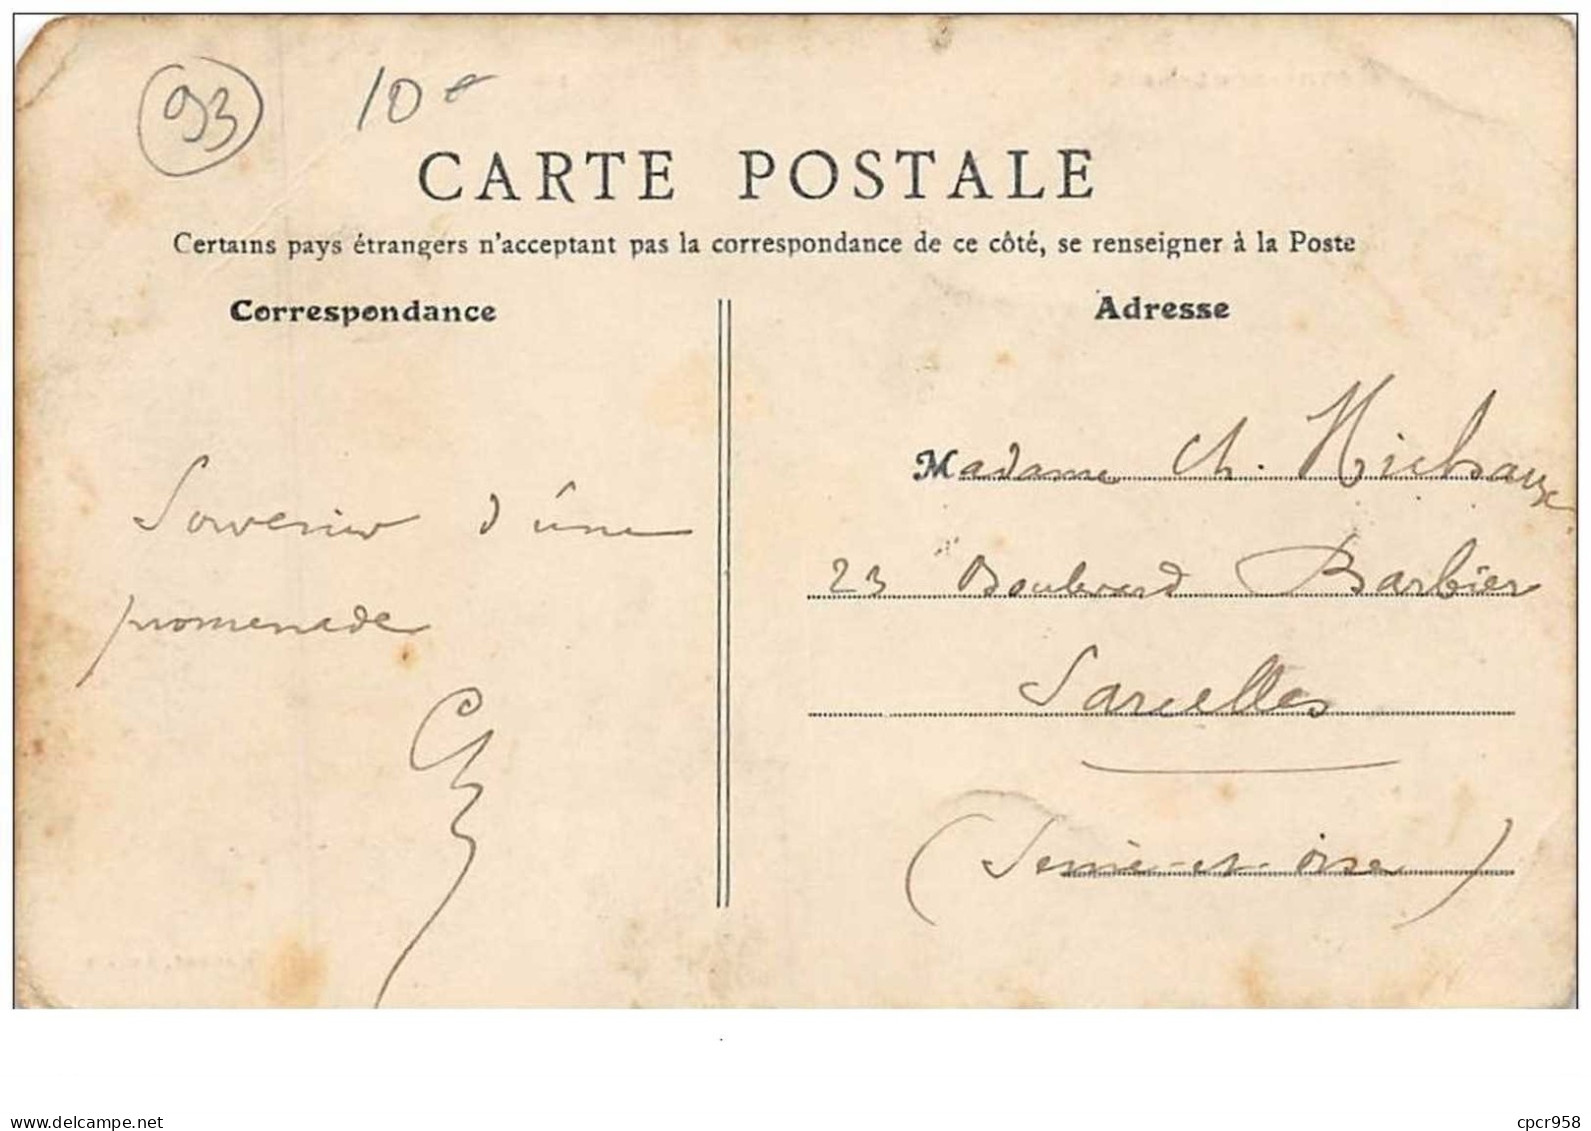 93
10 €
CARTE POSTALE
Certains pays étrangers n'acceptant pas la correspondance de ce côté, se renseigner à la Poste
Correspondance
Adresse
Madame Ch. Michaux
23 Boulevard Barbier
Sarcelles
(Seine-et-Oise)
Souvenir d'une
promenade
www.delcampe.net
cpcr958